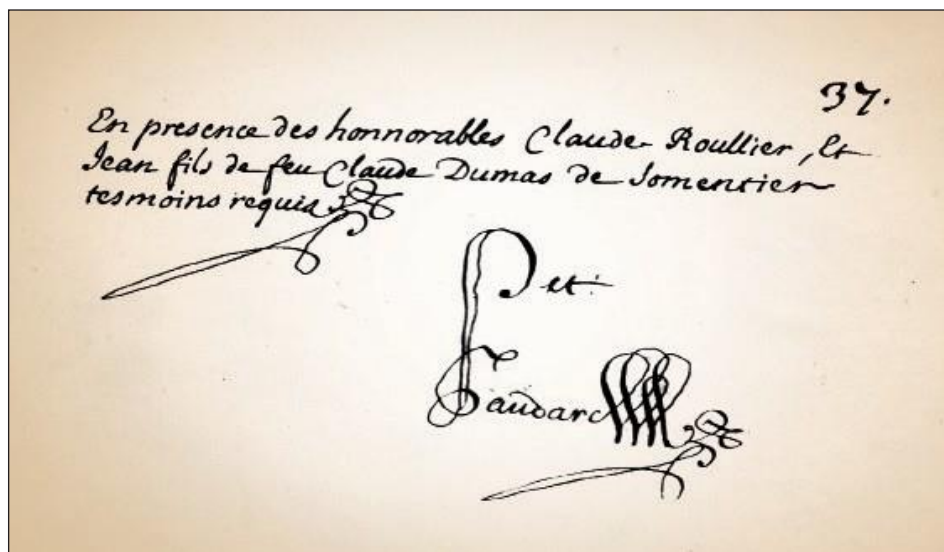 37.
En presence des honnorables Claude Roullier, Et
Jean fils de feu Claude Dumas de Somentier
tesmoins requis
Pet: